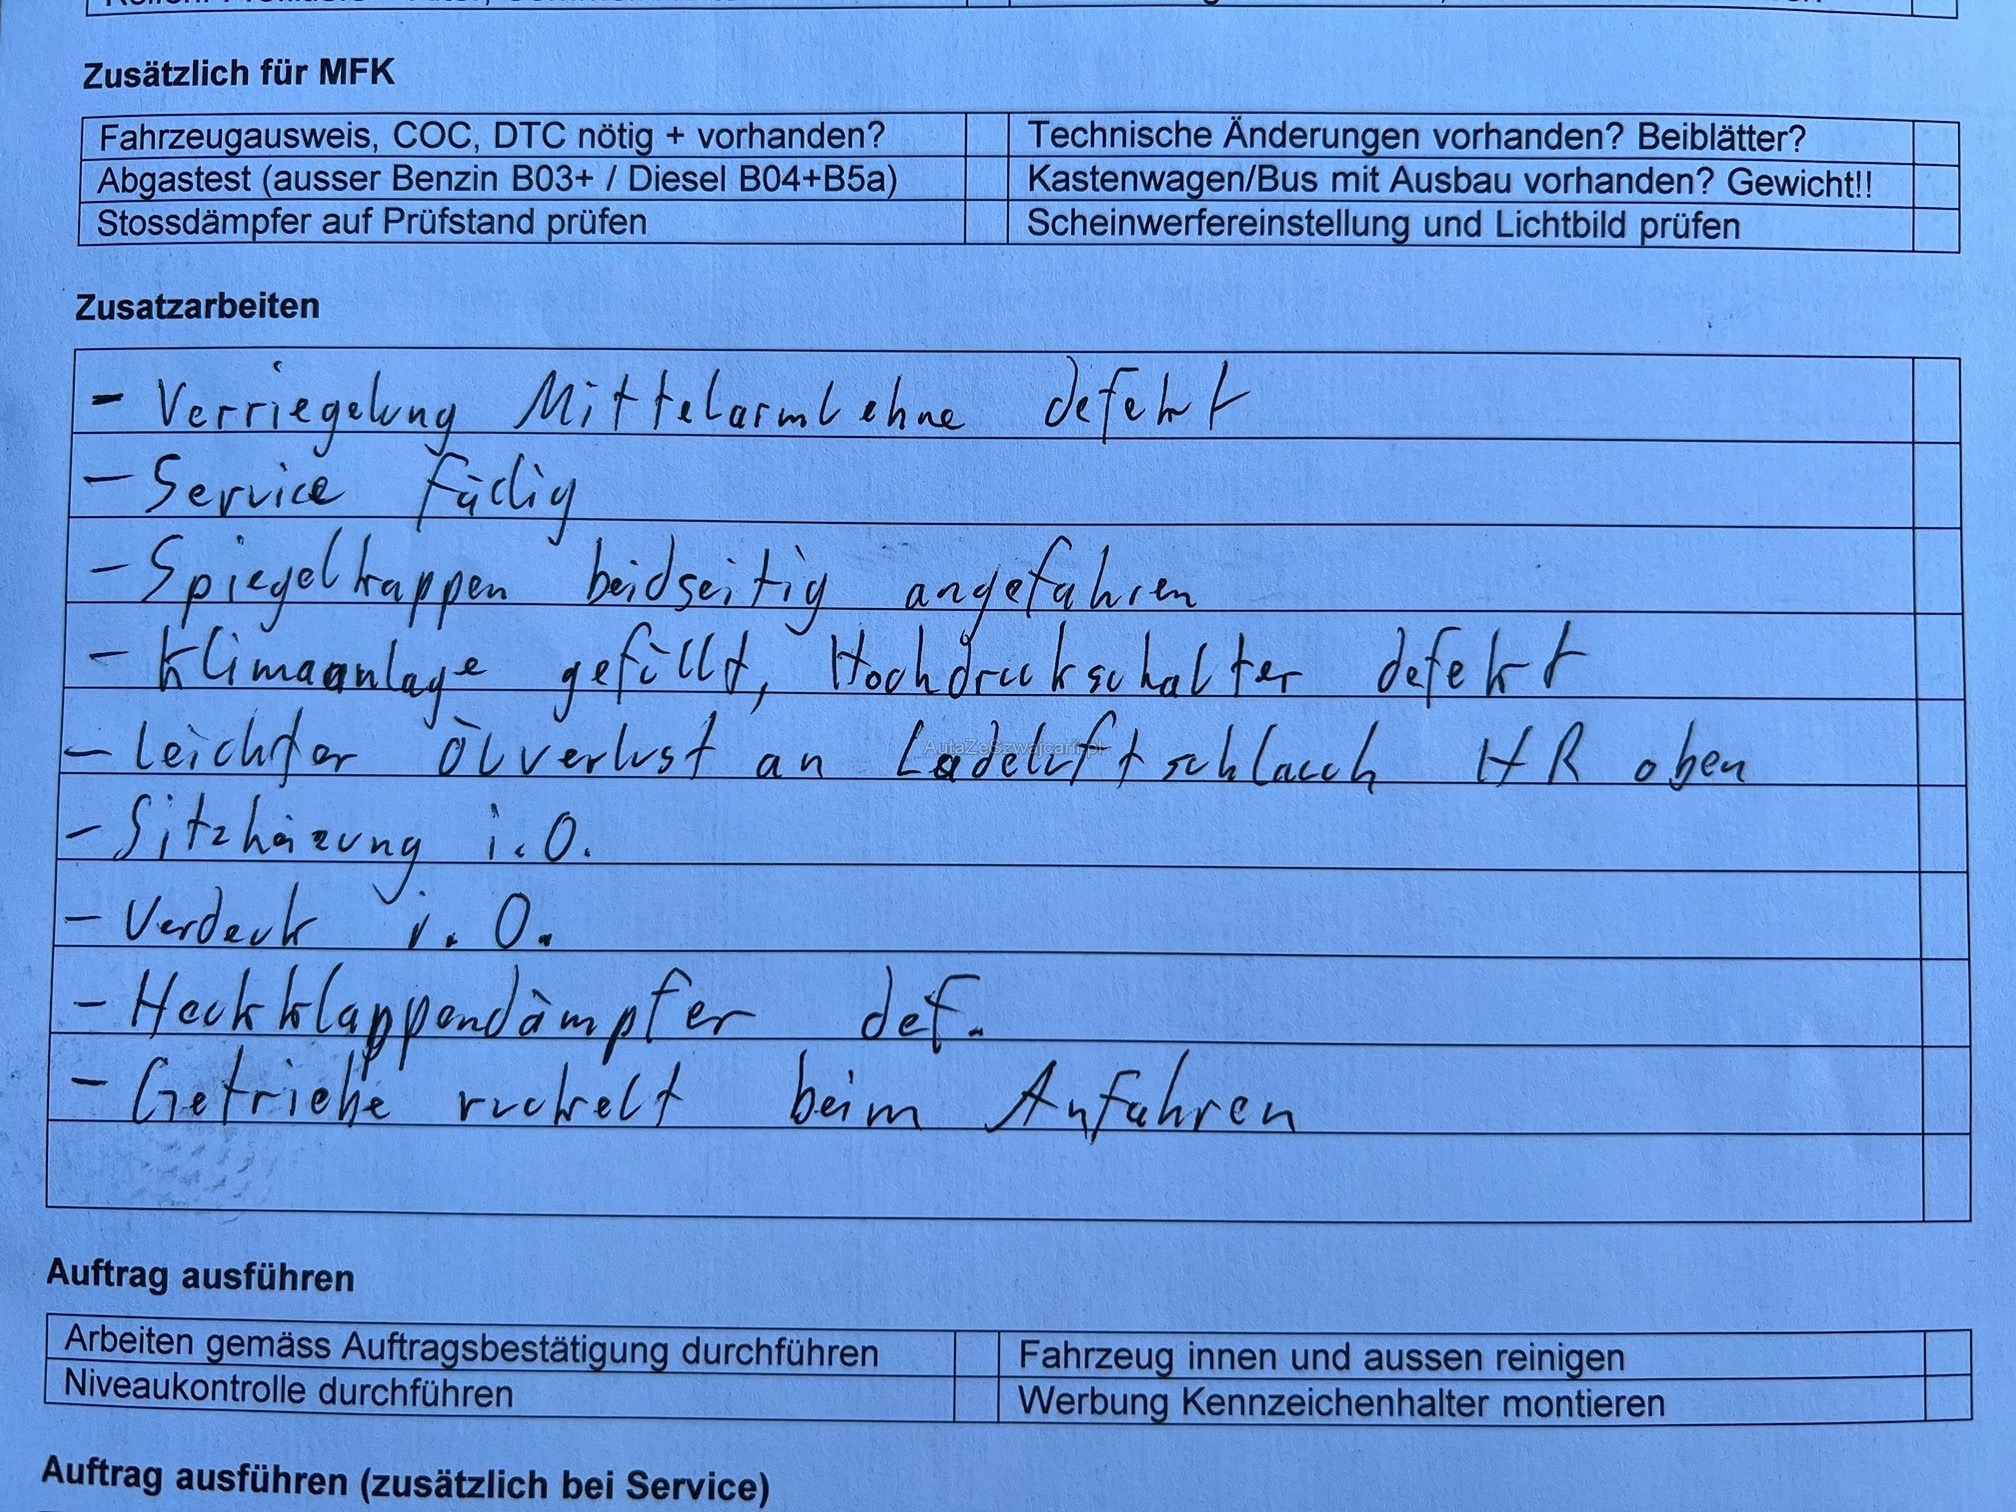 Zusätzlich für MFK
Fahrzeugausweis, COC, DTC nötig + vorhanden?
Technische Änderungen vorhanden? Beiblätter?
Abgastest (ausser Benzin B03+ / Diesel B04+B5a)
Kastenwagen/Bus mit Ausbau vorhanden? Gewicht!!
Stossdämpfer auf Prüfstand prüfen
Scheinwerfereinstellung und Lichtbild prüfen
Zusatzarbeiten
- Verriegelung Mittelarmlehne defekt
- Service fällig
- Spiegelkappen beidseitig angefahren
- Klimaanlage gefüllt, Hochdruckschalter defekt
- Leichter Ölverlust an Ladeluftschlauch HR oben
AutaZeSzwajcarii.pl
- Sitzhäizung i.O.
- Verdeck i.O.
- Heckklappendämpfer def.
- Getriebe ruckelt beim Anfahren
Auftrag ausführen
Arbeiten gemäss Auftragsbestätigung durchführen
Fahrzeug innen und aussen reinigen
Niveaukontrolle durchführen
Werbung Kennzeichenhalter montieren
Auftrag ausführen (zusätzlich bei Service)